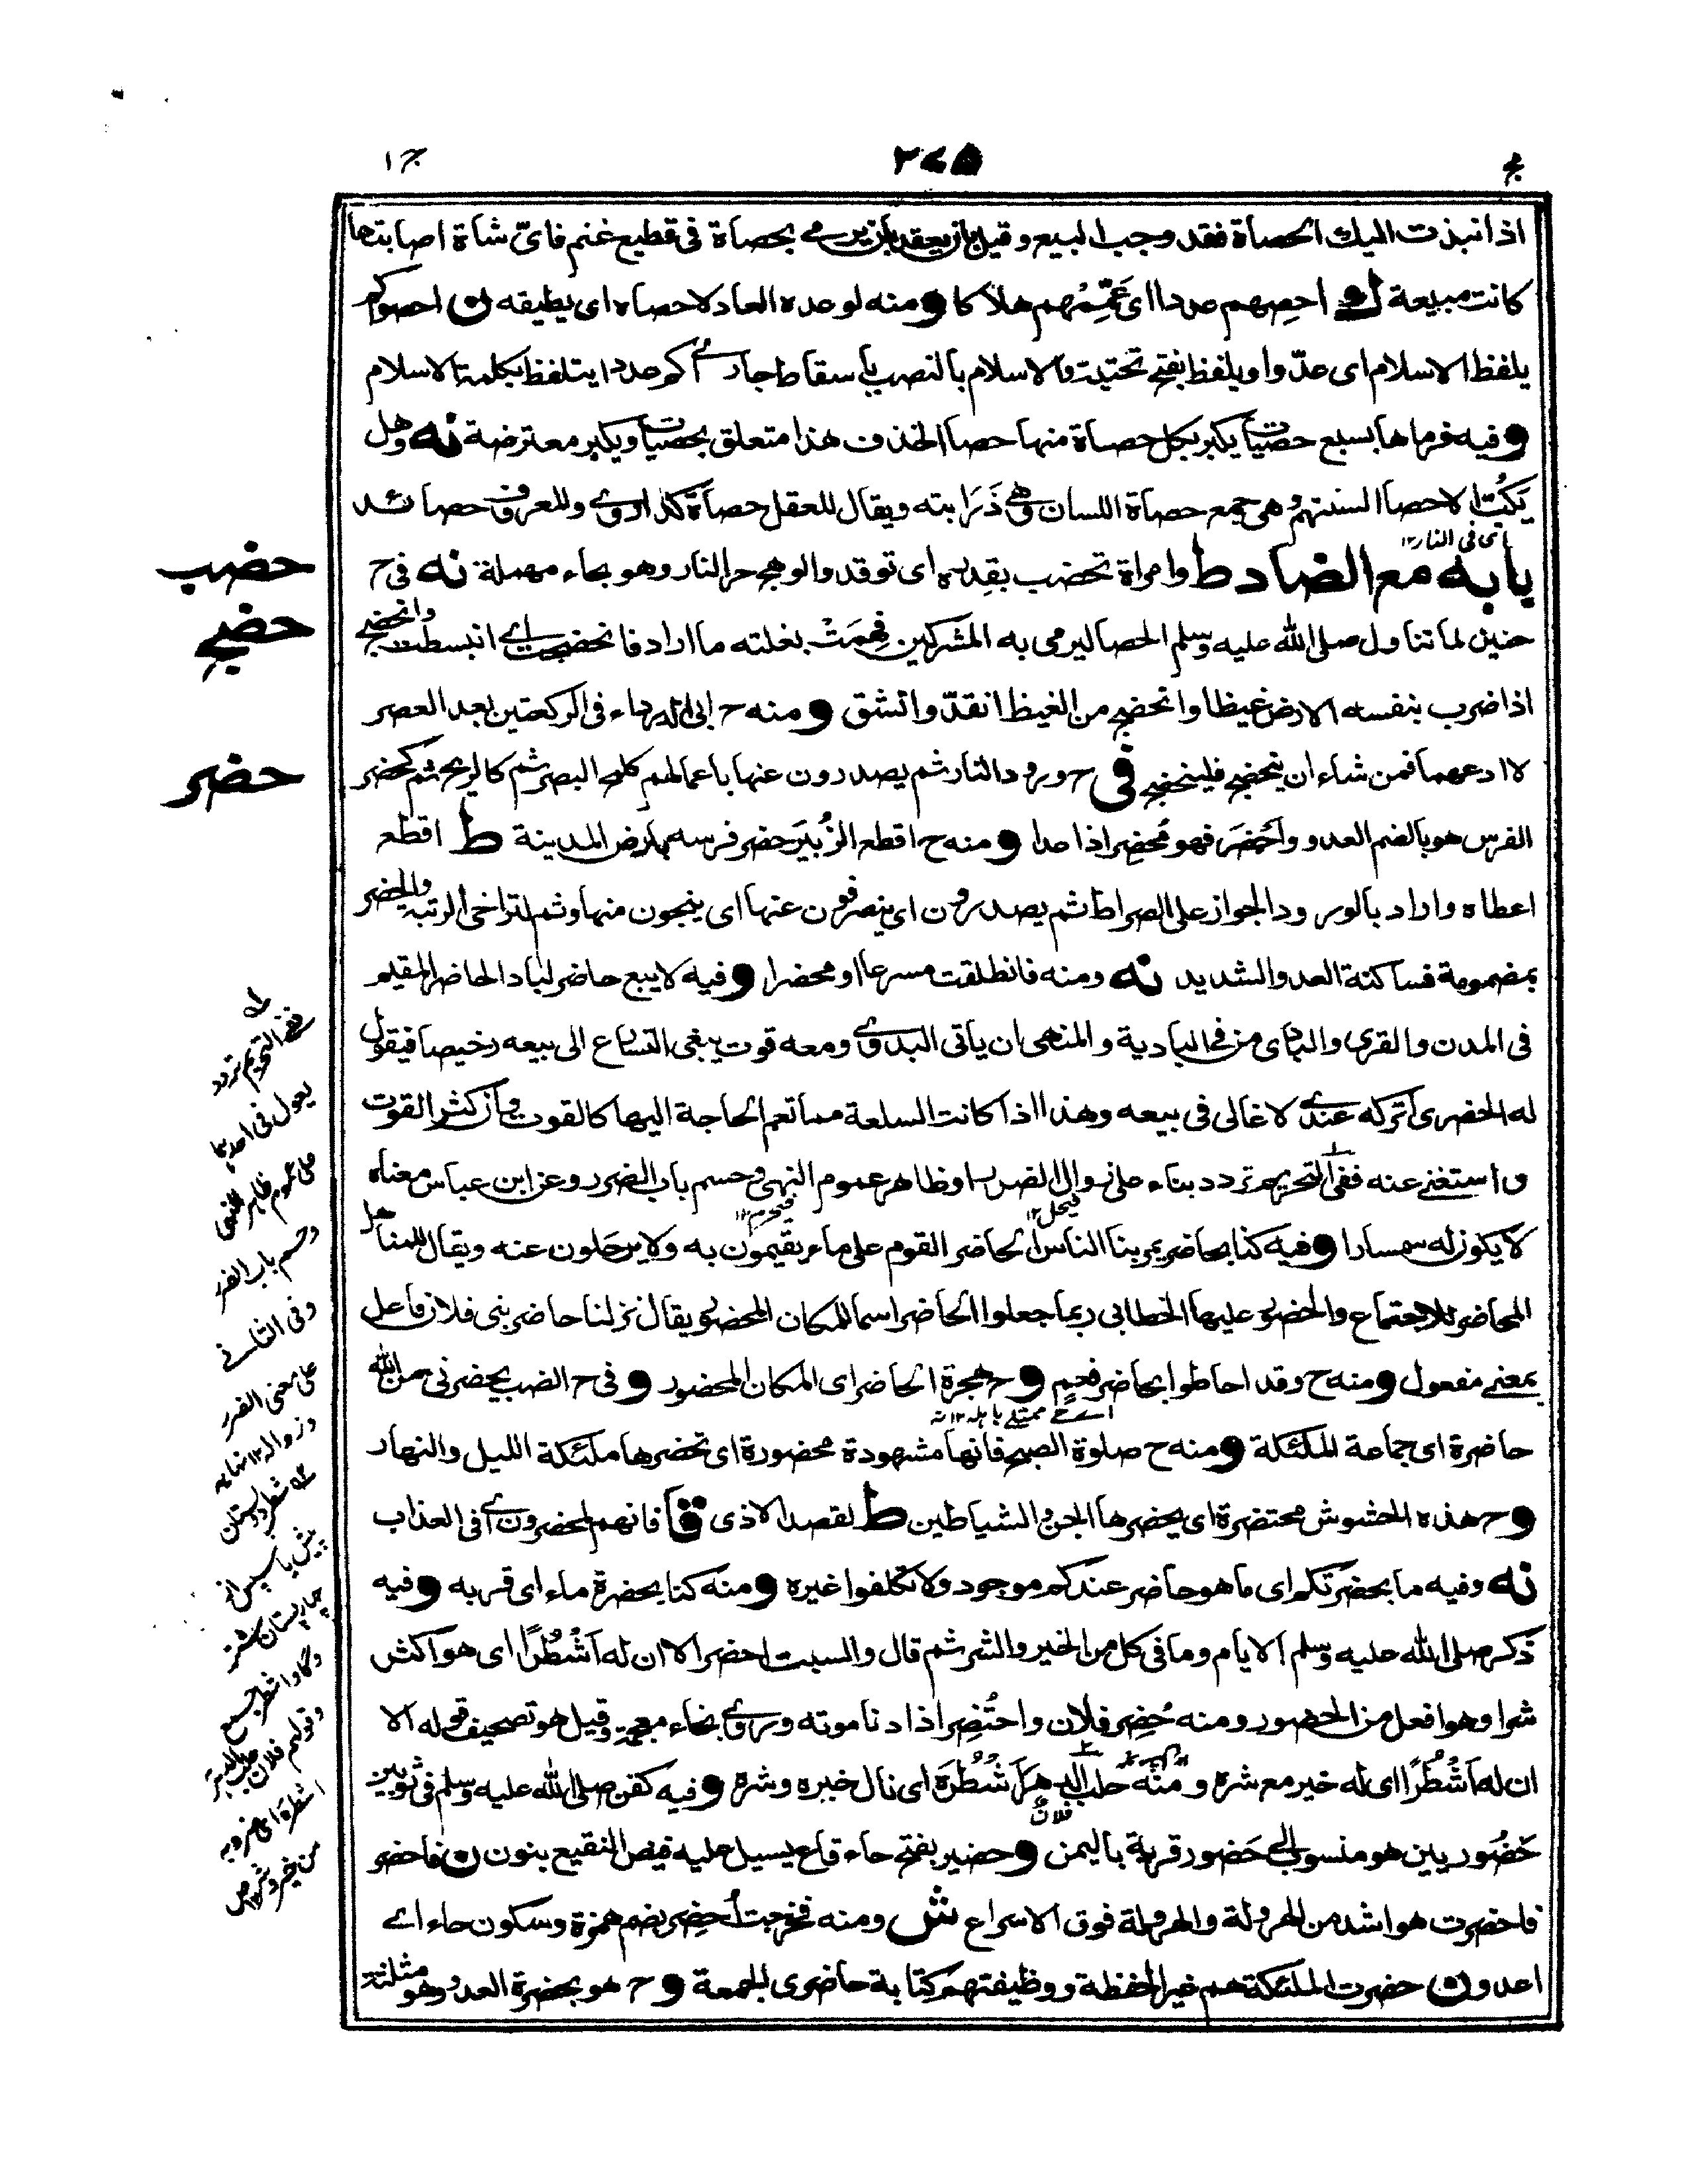 ج ١
٢٧٥
اذا نبذت اليك الحصاة فقد وجب البيع وقيل بان يعقد بان يرمى بحصاة فى قطيع غنم فاىّ شاة اصابتها
كانت مبيعة احصهم عددا اى عُمَّهم هلاكا ومنه لو عده العاد لاحصاه اى يطيقه ن احصوا كم
يلفظ الاسلام اى عدّوا ويلفظ بفتح تحتية والاسلام بالنصب باسقاط جار اى كم عددا يتلفظ بكلمة الاسلام
وفيه فرماها بسبع حصيات يكبر بكل حصاة منها حصا الخذف هذا متعلق بحصيات ويكبر معترضة نه وهل
يَكُبّ الاحصا السنتهم وهى جمع حصاة اللسان وهى ذَرَابته ويقال للعقل حصاة كذا روى والمعروف حصائد
اى فى النار١٢
بابه مع الضاد ط وامراة تحضب بقدره اى توقد والوهج حر النار وهو بحاء مهملة نه فى ح
حنين لما تناول صلى الله عليه وسلم الحصا ليرمى به المشركين فهِمَتْ بغلته ما اراد فانحضجت اى انبسطت وانحضج
اذا ضرب بنفسه الارض غيظا وانحضج من الغيظ انقدّ وانشق ومنه ح ابى الدرداء فى الركعتين بعد العصر
لا ادعهما فمن شاء ان ينحضج فلينحضج فى ح ورود النار ثم يصدرون عنها باعمالهم كلمح البصر ثم كالريح ثم كحضر
الفرس هو بالضم العدو واَحضَرَ فهو مُحضِر اذا عدا ومنه ح اقطع الزُبَيرَ حضر فرسه بارض المدينة ط اقطع
اعطاه واراد بالورود الجواز على الصراط ثم يصدرون اى ينصرفون عنها اى ينجون منها وثم لتراخى الرتبة والحضر
بمضمومة فساكنة العدو الشديد نه ومنه فانطلقت مسرعا او محضرا وفيه لا يبع حاضر لباد الحاضر المقيم
فى المدن والقرى والبادى من فى البادية والمنهى ان ياتى البدوى ومعه قوت يبغى التسارع الى بيعه رخيصا فيقول
له الحضرى اتركه عندى لاغالى فى بيعه وهذا اذا كانت السلعة مما تعم الحاجة اليها كالقوت وان كثر القوت
واستغنى عنه ففى التحريم تردد بناء على زوال الضرر او ظاهر عموم النهى وحسم باب الضرر وعن ابن عباس معناه
لا يكون له سمسارا وفيه كنا بحاضر يمر بنا الناس الحاضر القوم على ماء يقيمون به ولا يرحلون عنه ويقال للمناهل
المحاضر للاجتماع والحضور عليها الخطابى ربما جعلوا الحاضر اسما للمكان المحضور يقال نزلنا حاضر بنى فلان فاعل
بمعنى مفعول ومنه ح وقد احاطوا بحاضر فعم وح هجرة الحاضر اى المكان المحضور وفى ح الضب يحضرنى من الله
اى ممتلئ باهله ١٢ نه
حاضرة اى جماعة الملئكة ومنه ح صلوة الصبح فانها مشهودة محضورة اى تحضرها ملئكة الليل والنهار
وح هذه الحشوش محتضرة اى يحضرها الجن والشياطين ط لقصد الاذى قا فانهم لمحضرون اى فى العذاب
نه وفيه ما بحضرتكم اى ما هو حاضر عندكم موجود ولا تكلفوا غيره ومنه كنا بحضرة ماء اى قربه وفيه
ذكر صلى الله عليه وسلم الايام وما فى كل من الخير والشر ثم قال والسبت احضر الا ان له اَشْطُرًا اى هو اكثر
شرا وهو افعل من الحضور ومنه حُضِر فلان واحتُضِر اذا دنا موته وروى بخاء معجمة وقيل هو تصحيف قوله الا
ان له اَشْطُرًا اى له خير مع شره ومنه حلب الدهرَ اَشْطُرَه اى نال خيره وشره وفيه كفن صلى الله عليه وسلم فى ثوبين
فلان
حَضُوريين هو منسوب الى حَضُور قرية باليمن وحضير بفتح حاء قاع يسيل عليه فيض النقيع بنون ن فاحضر
فاحضرت هو اشد من الهرولة والهرولة فوق الاسراع ش ومنه فخرجت اُحضِر بضم همزة وسكون حاء اى
اعدو ن حضرت الملئكة هم غير الحفظة ووظيفتهم كتابة حاضرى الجمعة وح هو بحضرة العدو وهو مثلثة
حضب
حضج
حضر
ففى التحريم تردد
يعول فى احدهما
على عموم ظاهر النهى
وحسم باب الضرر
وفى الثانى
على معنى الضرر
وزواله ١٢ نهايه